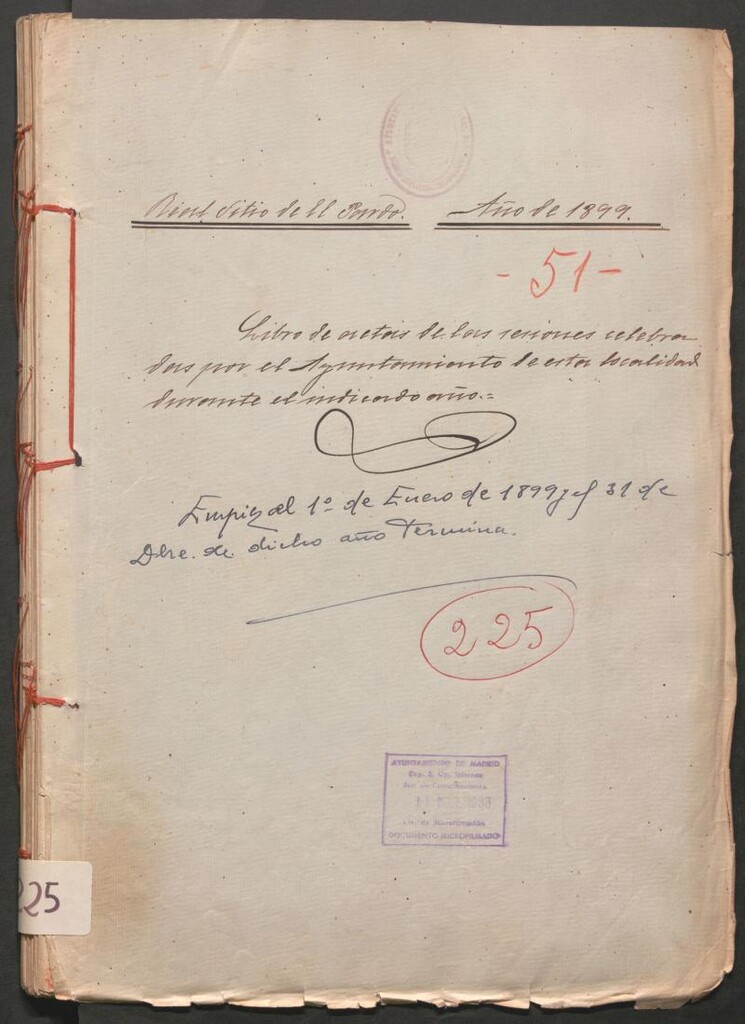 Real Sitio de El Pardo. Año de 1899.
- 51 -
Libro de actas de las sesiones celebra
das por el Ayuntamiento de esta localidad
durante el indicado año.=
Empieza el 1º de Enero de 1899 y el 31 de
Dbre. de dicho año Termina.
225
AYUNTAMIENTO DE MADRID
DOCUMENTO MICROFILMADO
225